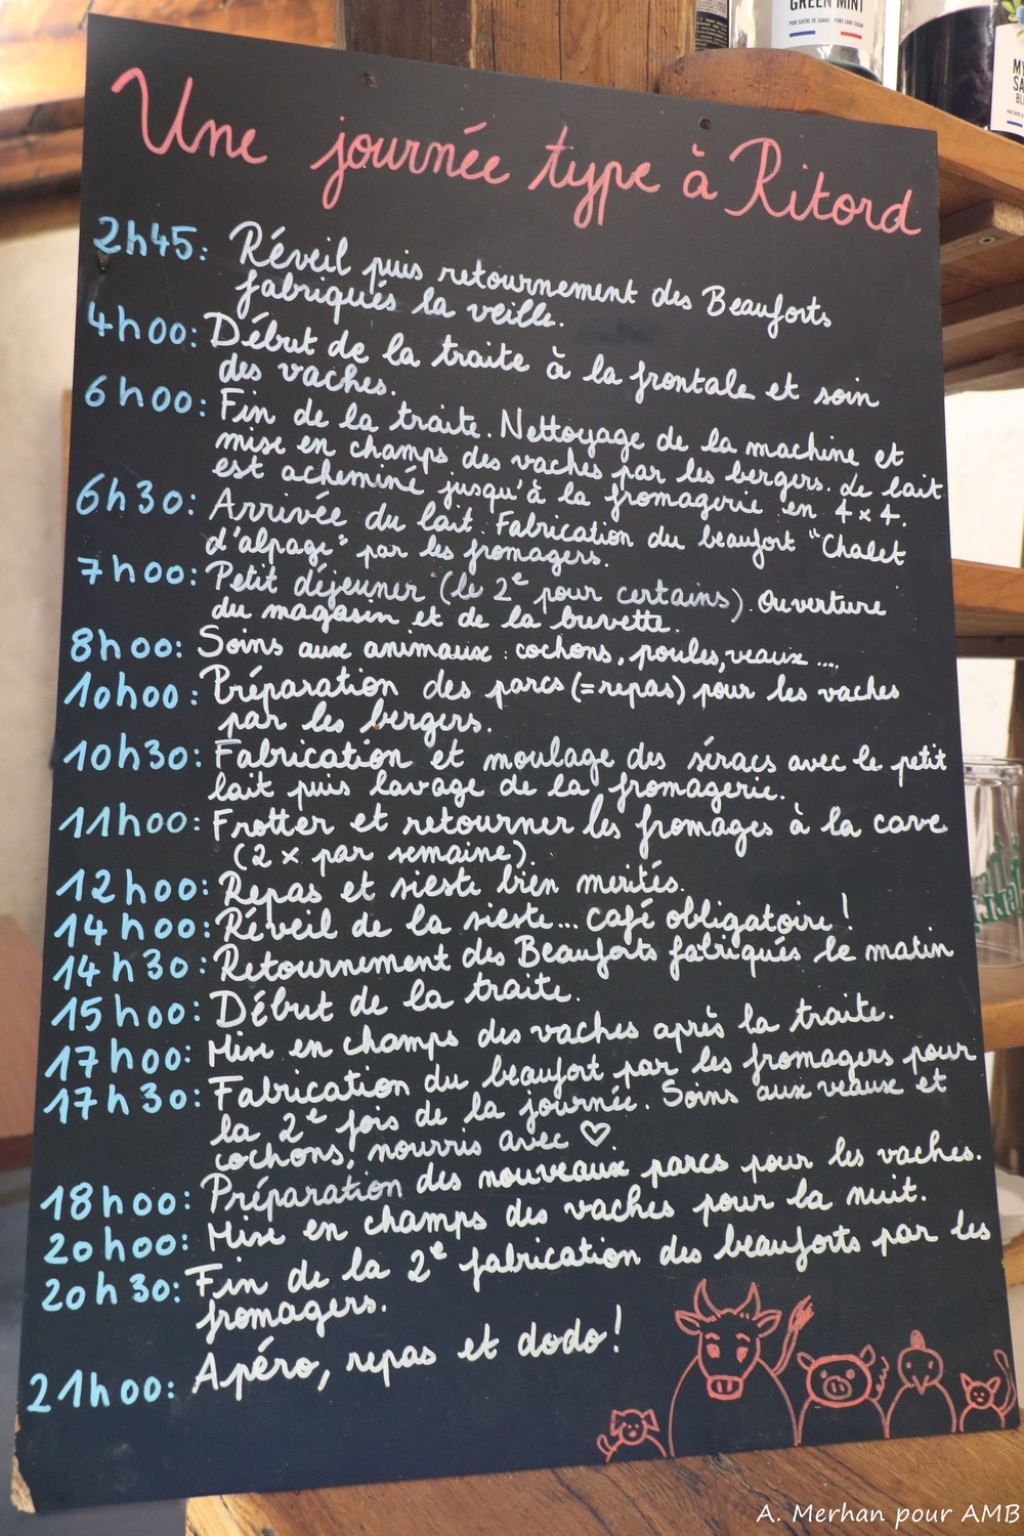 GREEN MINT
Une journée type à Ritord
2h45: Réveil puis retournement des Beauforts
fabriqués la veille.
4h00: Début de la traite à la frontale et soin
des vaches.
6h00: Fin de la traite. Nettoyage de la machine et
mise en champs des vaches par les bergers. Le lait
est acheminé jusqu'à la fromagerie en 4x4.
6h30: Arrivée du lait. Fabrication du beaufort "Chalet
d'alpage" par les fromagers.
7h00: Petit déjeuner (le 2e pour certains). Ouverture
du magasin et de la buvette.
8h00: Soins aux animaux : cochons, poules, veaux ...
10h00: Préparation des parcs (=repas) pour les vaches
par les bergers.
10h30: Fabrication et moulage des séracs avec le petit
lait puis lavage de la fromagerie.
11h00: Frotter et retourner les fromages à la cave
(2 x par semaine).
12h00: Repas et sieste bien mérités.
14h00: Réveil de la sieste... café obligatoire!
14h30: Retournement des Beauforts fabriqués le matin
15h00: Début de la traite.
17h00: Mise en champs des vaches après la traite.
17h30: Fabrication du beaufort par les fromagers pour
la 2e fois de la journée. Soins aux veaux et
cochons, nourris avec ♡.
18h00: Préparation des nouveaux parcs pour les vaches.
20h00: Mise en champs des vaches pour la nuit.
20h30: Fin de la 2e fabrication des beauforts par les
fromagers.
21h00: Apéro, repas et dodo!
A. Merhan pour AMB